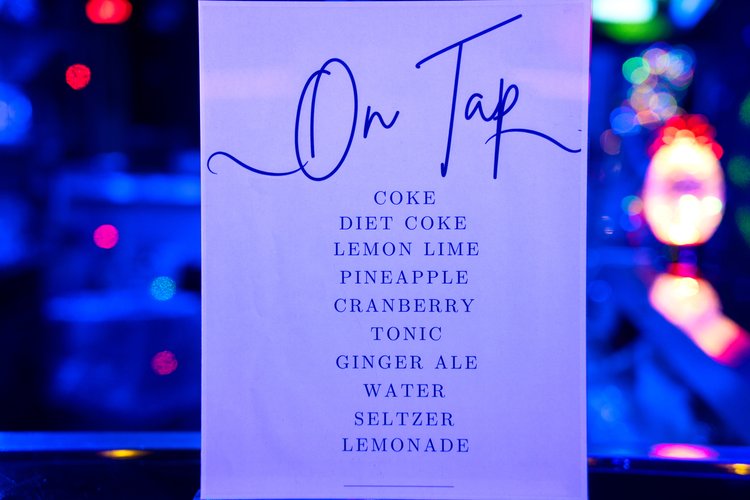 On Tap
COKE
DIET COKE
LEMON LIME
PINEAPPLE
CRANBERRY
TONIC
GINGER ALE
WATER
SELTZER
LEMONADE